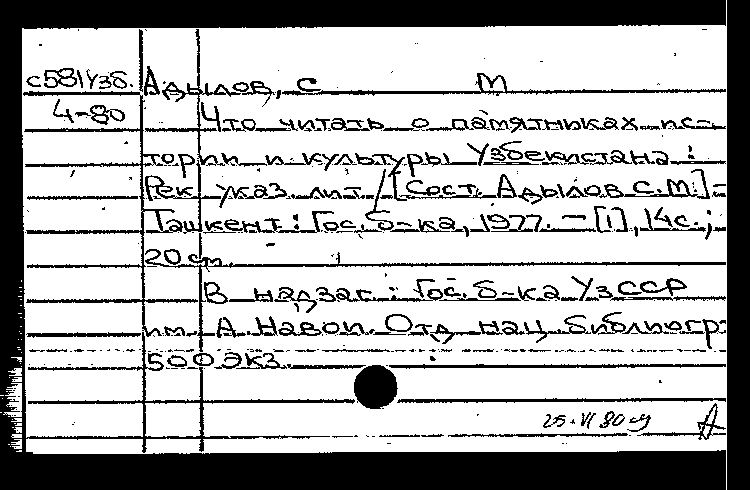 с581Узб. Адылов, С М
4-80 Что читать о памятниках ис-
тории и культуры Узбекистана :
Рек указ. лит / [Сост. Адылов С.М.] -
Ташкент : Гос. б-ка, 1977. - [1], 14с.;
20 см.
В надзаг. : Гос. б-ка УзССР
им. А. Навои. Отд нац библиогр.
500 экз.
25.VI 80